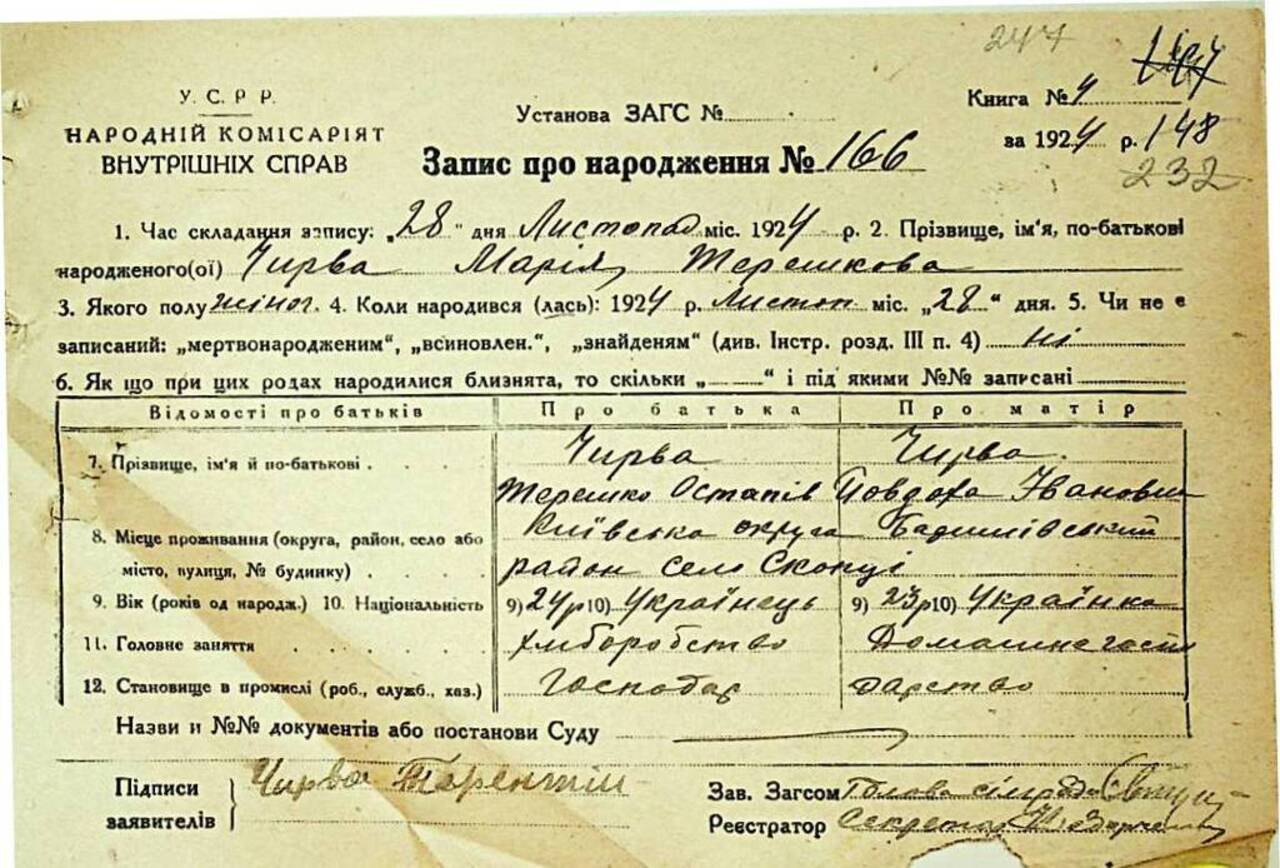 247
147
У. С. Р Р.
НАРОДНІЙ КОМІСАРІЯТ
ВНУТРІШНІХ СПРАВ
Установа ЗАГС №
Книга № 4
за 1924 р. 148
232
Запис про народження № 166
1. Час складання запису: „28" дня Листопад міс. 1924 р. 2. Прізвище, ім'я, по-батькові
народженого(ої) Чирва Марія Терешкова
3. Якого полу жіноч. 4. Коли народився (лась): 1924 р. Листоп міс. „28" дня. 5. Чи не є
записаний: „мертвонародженим", „всиновлен.", „знайденям" (див. Інстр. розд. III п. 4) ні
6. Як що при цих родах народилися близнята, то скільки „ — " і під якими №№ записані
Відомості про батьків Про батька Про матір
7. Прізвище, ім'я й по-батькові . . . Чирва Чирва
Терешко Остапів Йовдоха Івановна
8. Місце проживання (округа, район, село або Київська округа
місто, вулиця, № будинку) . . . . район село Скопці
9. Вік (років од народж.) 10. Національність 9) 24р 10) Українець 9) 23р 10) Українка
11. Головне заняття . . . . . . хліборобство Домашнє госпо
12. Становище в промислі (роб., служб., хаз.) Господар дарство
Назви и №№ документів або постанови Суду
Підписи
заявителів
Чирва Терентій
Зав. Загсом Голова сілради
Реєстратор Секретар